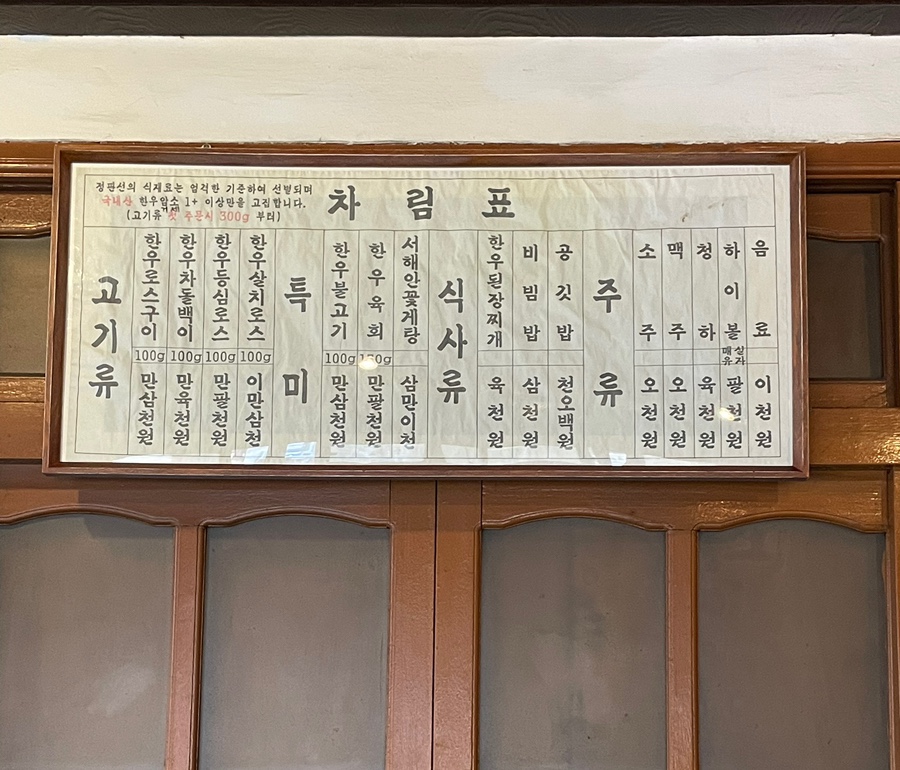 정판선의 식재료는 엄격한 기준하에 선별되며
국내산 한우암소 1+ 이상만을 고집합니다.
거세
(고기류 첫 주문시 300g 부터)
차림표
고기류
한우로스구이 100g 만삼천원
한우차돌백이 100g 만육천원
한우등심로스 100g 만팔천원
한우살치로스 100g 이만삼천
특미
한우불고기 100g 만삼천원
한우육회 150g 만팔천원
서해안꽃게탕 삼만이천
식사류
한우된장찌개 육천원
비빔밥 삼천원
공깃밥 천오백원
주류
소주 오천원
맥주 오천원
청하 육천원
하이볼 매실 유자 팔천원
음료 이천원